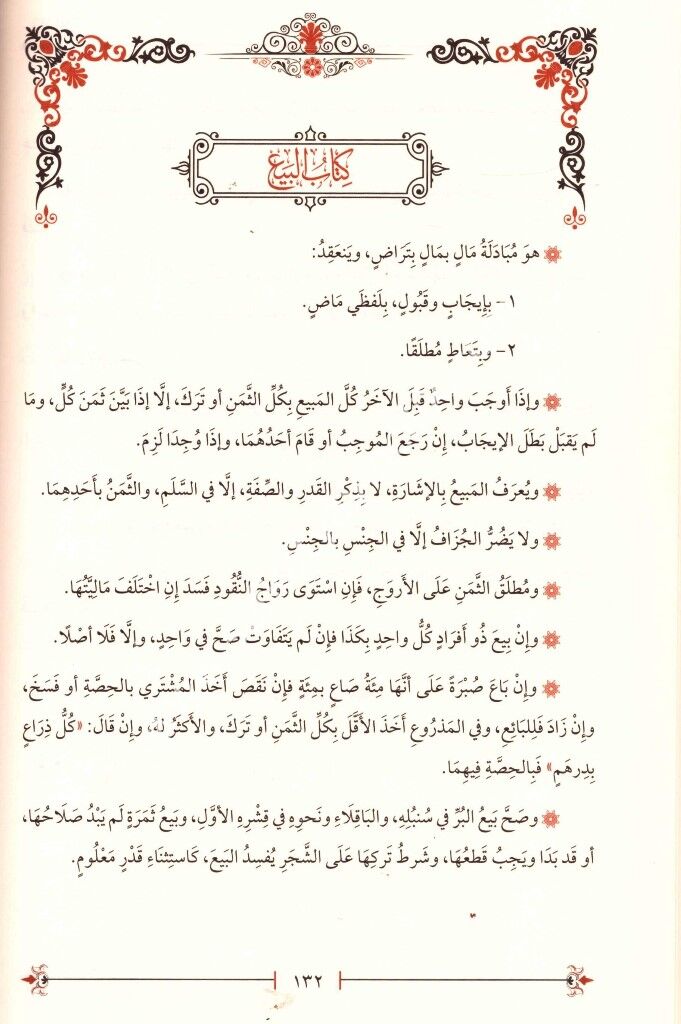 كِتَابُ البَيْعِ
هوَ مُبَادَلَةُ مَالٍ بمَالٍ بِتَرَاضٍ، ويَنعَقِدُ:
١- بِإِيجَابٍ وقَبُولٍ، بِلَفظَي مَاضٍ.
٢- وبِتَعَاطٍ مُطلَقًا.
وإذَا أَوجَبَ واحِدٌ قَبِلَ الآخَرُ كُلَّ المَبيعِ بِكُلِّ الثَّمَنِ أو تَرَكَ، إلَّا إذَا بَيَّنَ ثَمَنَ كُلٍّ، ومَا
لَم يَقبَلْ بَطَلَ الإيجَابُ، إنْ رَجَعَ المُوجِبُ أو قَامَ أحَدُهُمَا، وإذَا وُجِدَا لَزِمَ.
ويُعرَفُ المَبيعُ بِالإشَارَةِ، لا بِذِكْرِ القَدرِ والصِّفَةِ، إلَّا في السَّلَمِ، والثَّمَنُ بأَحَدِهِمَا.
ولا يَضُرُّ الجُزَافُ إلَّا في الجِنْسِ بالجِنْسِ.
ومُطلَقُ الثَّمَنِ عَلَى الأَروَجِ، فَإِنِ اسْتَوَى رَوَاجُ النُّقُودِ فَسَدَ إنِ اخْتَلَفَ مَالِيَّتُهَا.
وإنْ بِيعَ ذُو أَفرَادٍ كُلُّ واحِدٍ بِكَذَا فإنْ لَم يَتَفَاوَتْ صَحَّ في وَاحِدٍ، وإلَّا فَلَا أصْلًا.
وإنْ بَاعَ صُبْرَةً عَلَى أنَّهَا مِئَةُ صَاعٍ بمِئَةٍ فإنْ نَقَصَ أخَذَ المُشْتَري بالحِصَّةِ أو فَسَخَ،
وإنْ زَادَ فَلِلبَائِعِ، وفي المَذرُوعِ أخَذَ الأَقَّلَ بِكُلِّ الثَّمَنِ أو تَرَكَ، والأكثَرُ لَهُ، وإنْ قَالَ: «كُلُّ ذِرَاعٍ
بِدِرهَمٍ» فَبِالحِصَّةِ فِيهِمَا.
وصَحَّ بَيعُ البُرِّ في سُنبُلِهِ، والبَاقِلَاءِ ونَحوِهِ في قِشْرِهِ الأوَّلِ، وبَيعُ ثَمَرَةٍ لَم يَبْدُ صَلَاحُهَا،
أو قَد بَدَا ويَجِبُ قَطعُهَا، وشَرطُ تَركِهَا عَلَى الشَّجَرِ يُفسِدُ البَيعَ، كَاستِثنَاءِ قَدْرٍ مَعْلُومٍ.
١٣٢